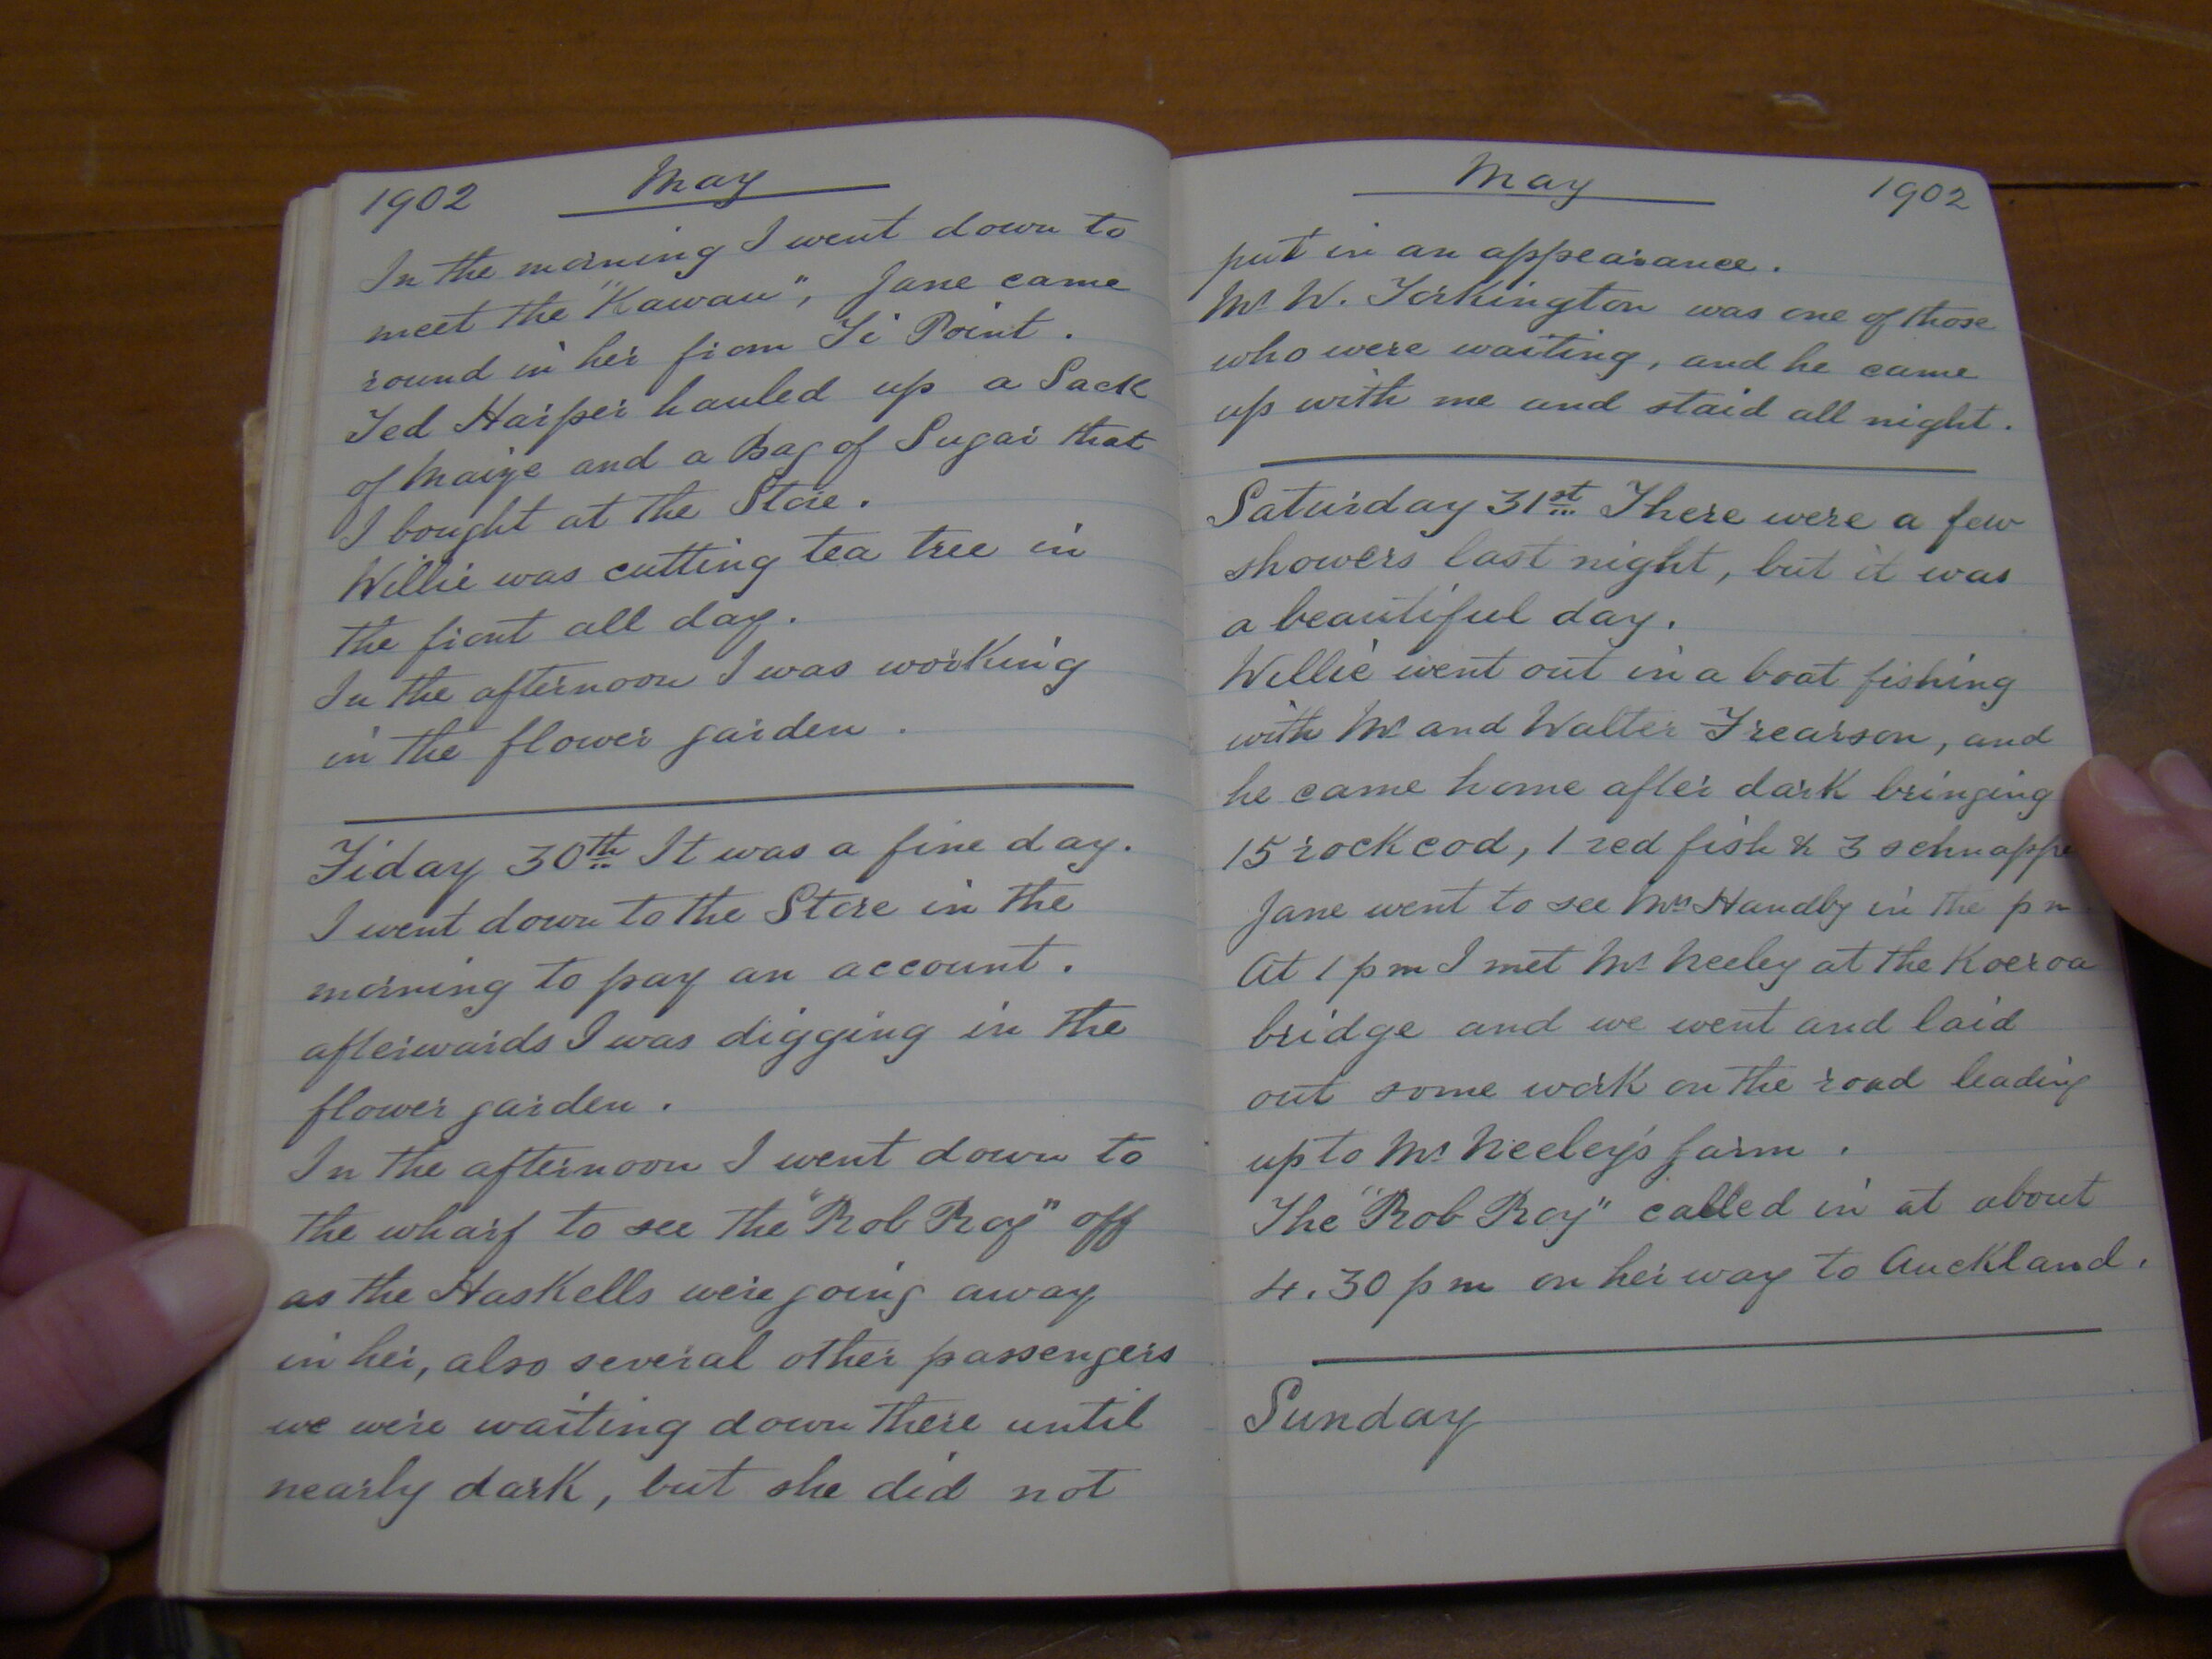 1902 May
In the morning I went down to
meet the "Kawau", Jane came
round in her from Ti Point.
Ted Harper hauled up a Sack
of Maize and a Bag of Sugar that
I bought at the Store.
Willie was cutting tea tree in
the front all day.
In the afternoon I was working
in the flower garden.
Friday 30th It was a fine day.
I went down to the Store in the
morning to pay an account.
afterwards I was digging in the
flower garden.
In the afternoon I went down to
the wharf to see the "Rob Roy" off
as the Haskells were going away
in her, also several other passengers
we were waiting down there until
nearly dark, but she did not
May 1902
put in an appearance.
Mr W. Torkington was one of those
who were waiting, and he came
up with me and staid all night.
Saturday 31st There were a few
showers last night, but it was
a beautiful day.
Willie went out in a boat fishing
with Mr and Walter Frearson, and
he came home after dark bringing
15 rock cod, 1 red fish & 3 schnappe
Jane went to see Mrs Handby in the pm
At 1 pm I met Mr Neeley at the Koeroa
bridge and we went and laid
out some work on the road leading
up to Mr Neeley's farm.
The "Rob Roy" called in at about
4.30 pm on her way to Auckland.
Sunday